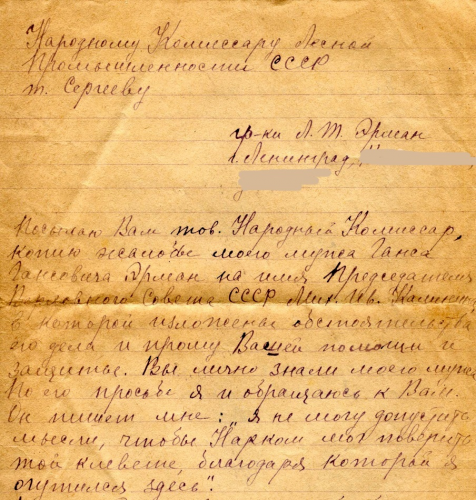 Народному Комиссару Лесной
Промышленности СССР
т. Сергееву
гр-ки Л. Т. Эрман
г. Ленинград,
Посылаю Вам тов. Народный Комиссар,
копию жалобы моего мужа Ганса
Гансовича Эрман на имя Председателя
Верховного Совета СССР Мих. Ив. Калинина
в которой изложены обстоятельства
его дела и прошу Вашей помощи и
защиты. Вы лично знали моего мужа
По его просьбе я и обращаюсь к Вам.
Он пишет мне: „я не могу допустить
мысли, чтобы Нарком мог поверить
той клевете, благодаря которой я
очутился здесь".